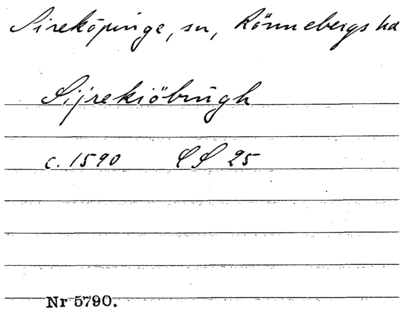 Sireköpinge, sn, Rönnebergs hd
Sijrekiöbrugh
c. 1590 CS 25
Nr 5790.